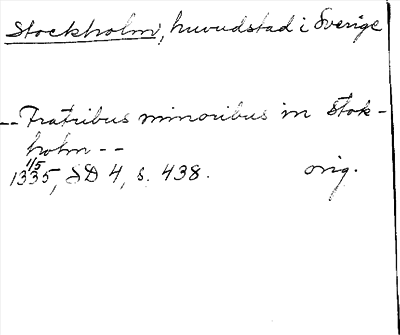 Stockholm, huvudstad i Sverige
-- Fratribus minoribus in Stok-
holm --
1/5
1335, SD 4, s. 438. orig.